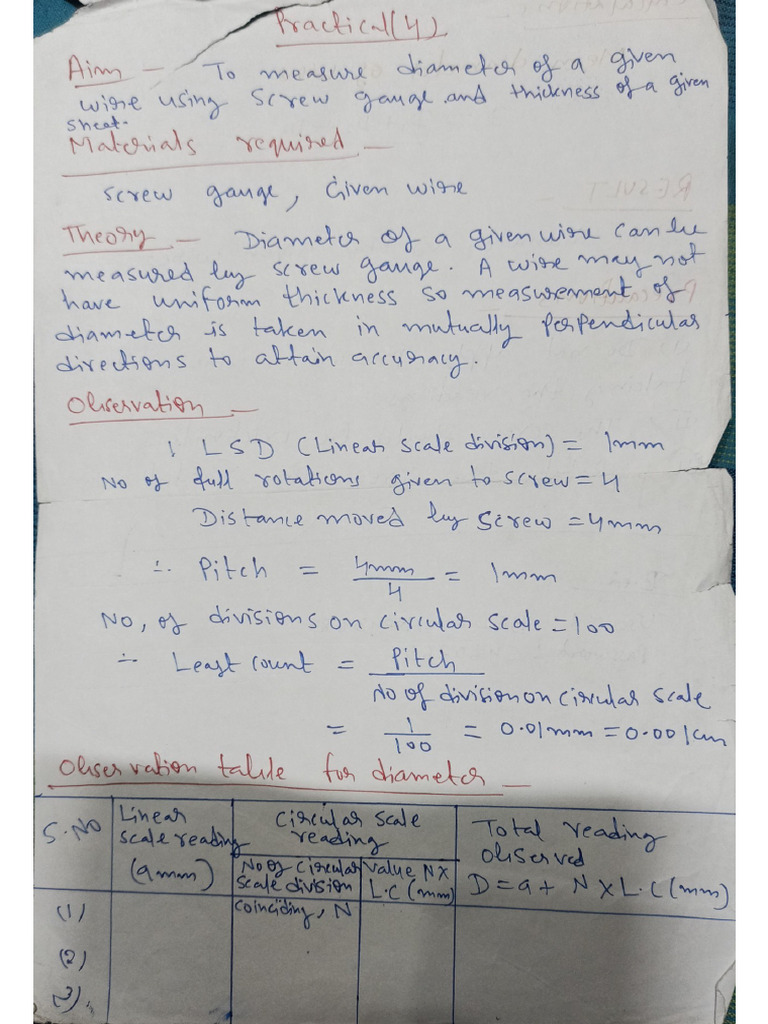 Practical (4)
Aim - To measure diameter of a given
wire using screw gauge and thickness of a given
sheet.
Materials required -
screw gauge, Given wire
Theory - Diameter of a given wire can be
measured by screw gauge. A wire may not
have uniform thickness so measurement of
diameter is taken in mutually perpendicular
directions to attain accuracy.
Observation -
1 LSD (Linear scale division) = 1mm
No of full rotations given to screw = 4
Distance moved by screw = 4mm
∴ Pitch = 4mm/4 = 1mm
No, of divisions on circular scale = 100
∴ Least count = Pitch / No of division on circular scale
= 1/100 = 0.01mm = 0.001cm
Observation table for diameter -
S.NO
Linear
scale reading
(a mm)
Circular scale
reading
No of circular
scale division
coinciding, N
Value N×
L.C (mm)
Total reading
observed
D = a + N × L.C (mm)
(1)
(2)
(3).